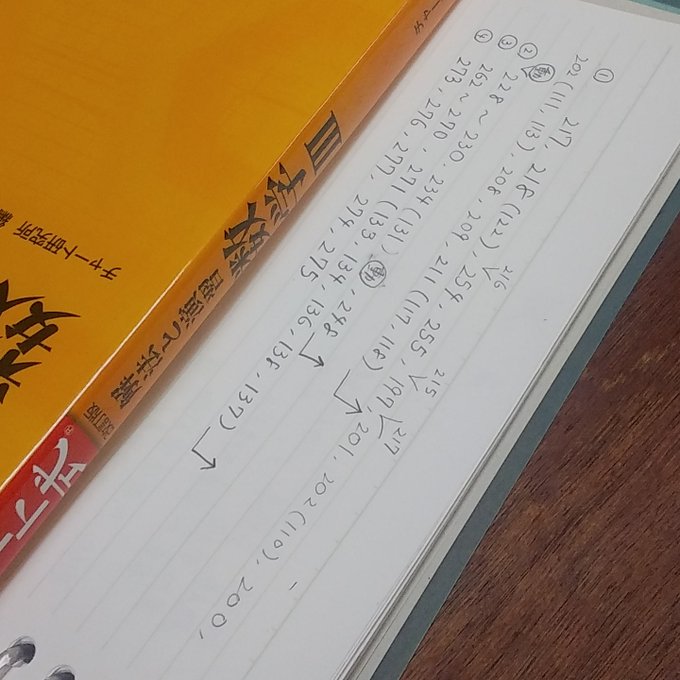 ① 217, 218(122), 254, 255, 197, 201, 202(110), 200,
216
215
217
202(111, 113), 208, 209, 211(117, 118)
② 228~230, 234(131), 248
③ 262~270, 271(133, 134, 136, 138, 137)
④ 273, 276, 277, 274, 275
改訂版
解法と演習
数学 III
チャート研究所 編